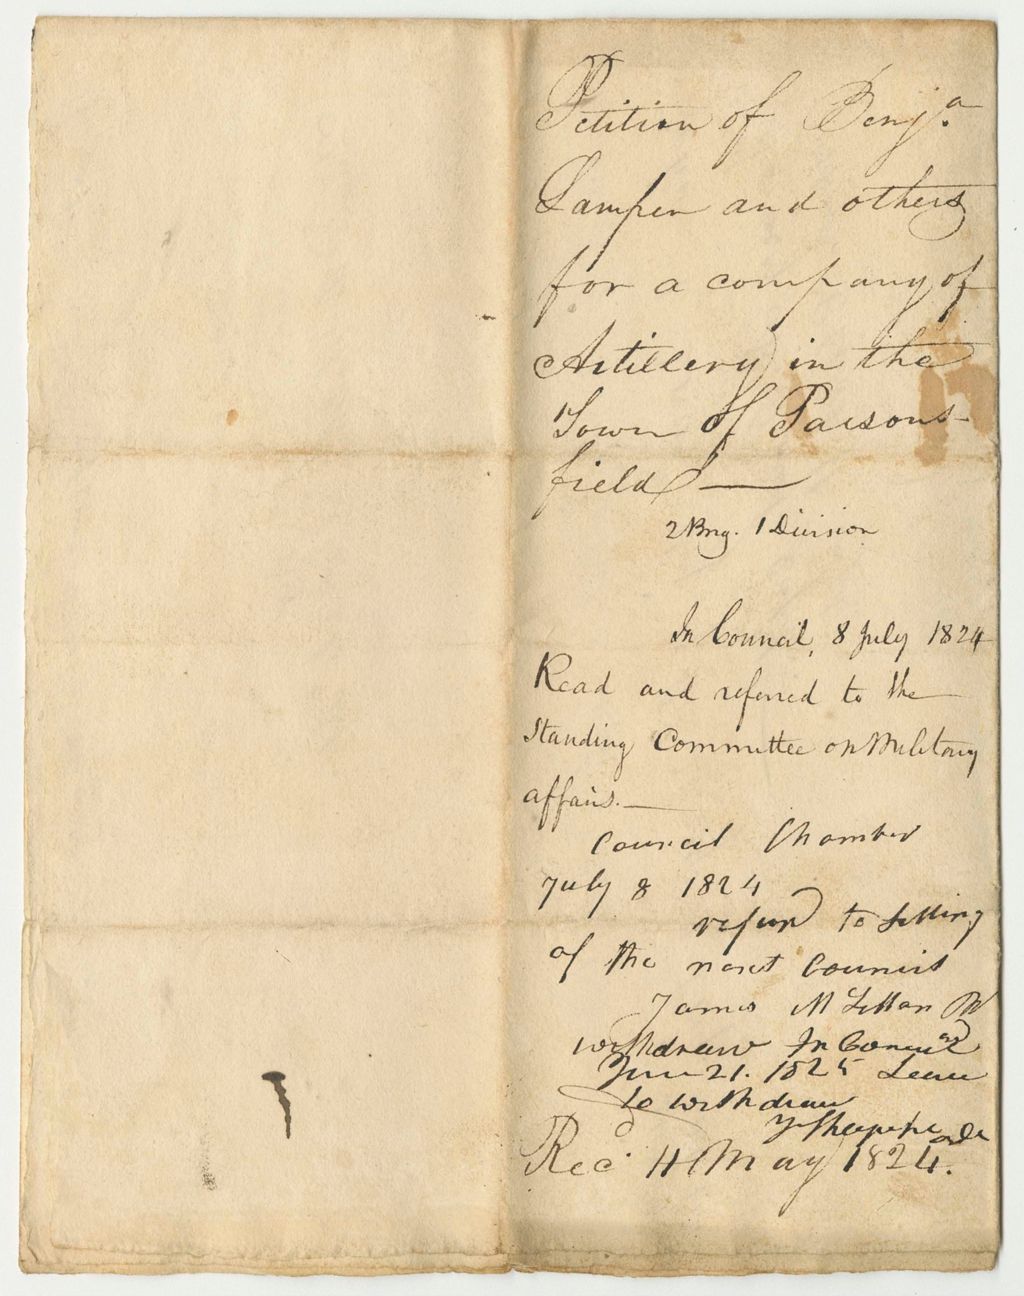 Petition of Benja.
Lamper and others
for a company of
Artillery in the
Town of Parsons-
field —
2 Brig. 1 Division
In Council, 8 July 1824
Read and referred to the
Standing Committee on Military
affairs. —
Council Chamber
July 8 1824
to sitting
of the next Council
James
withdraw In Council
June 21. 1825 Leave
to withdraw
Recd. 4 May 1824.